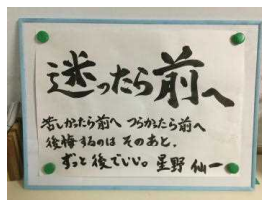 迷ったら前へ
苦しかったら前へ つらかったら前へ
後悔するのは そのあと、
ずっと後でいい。 星野 仙一